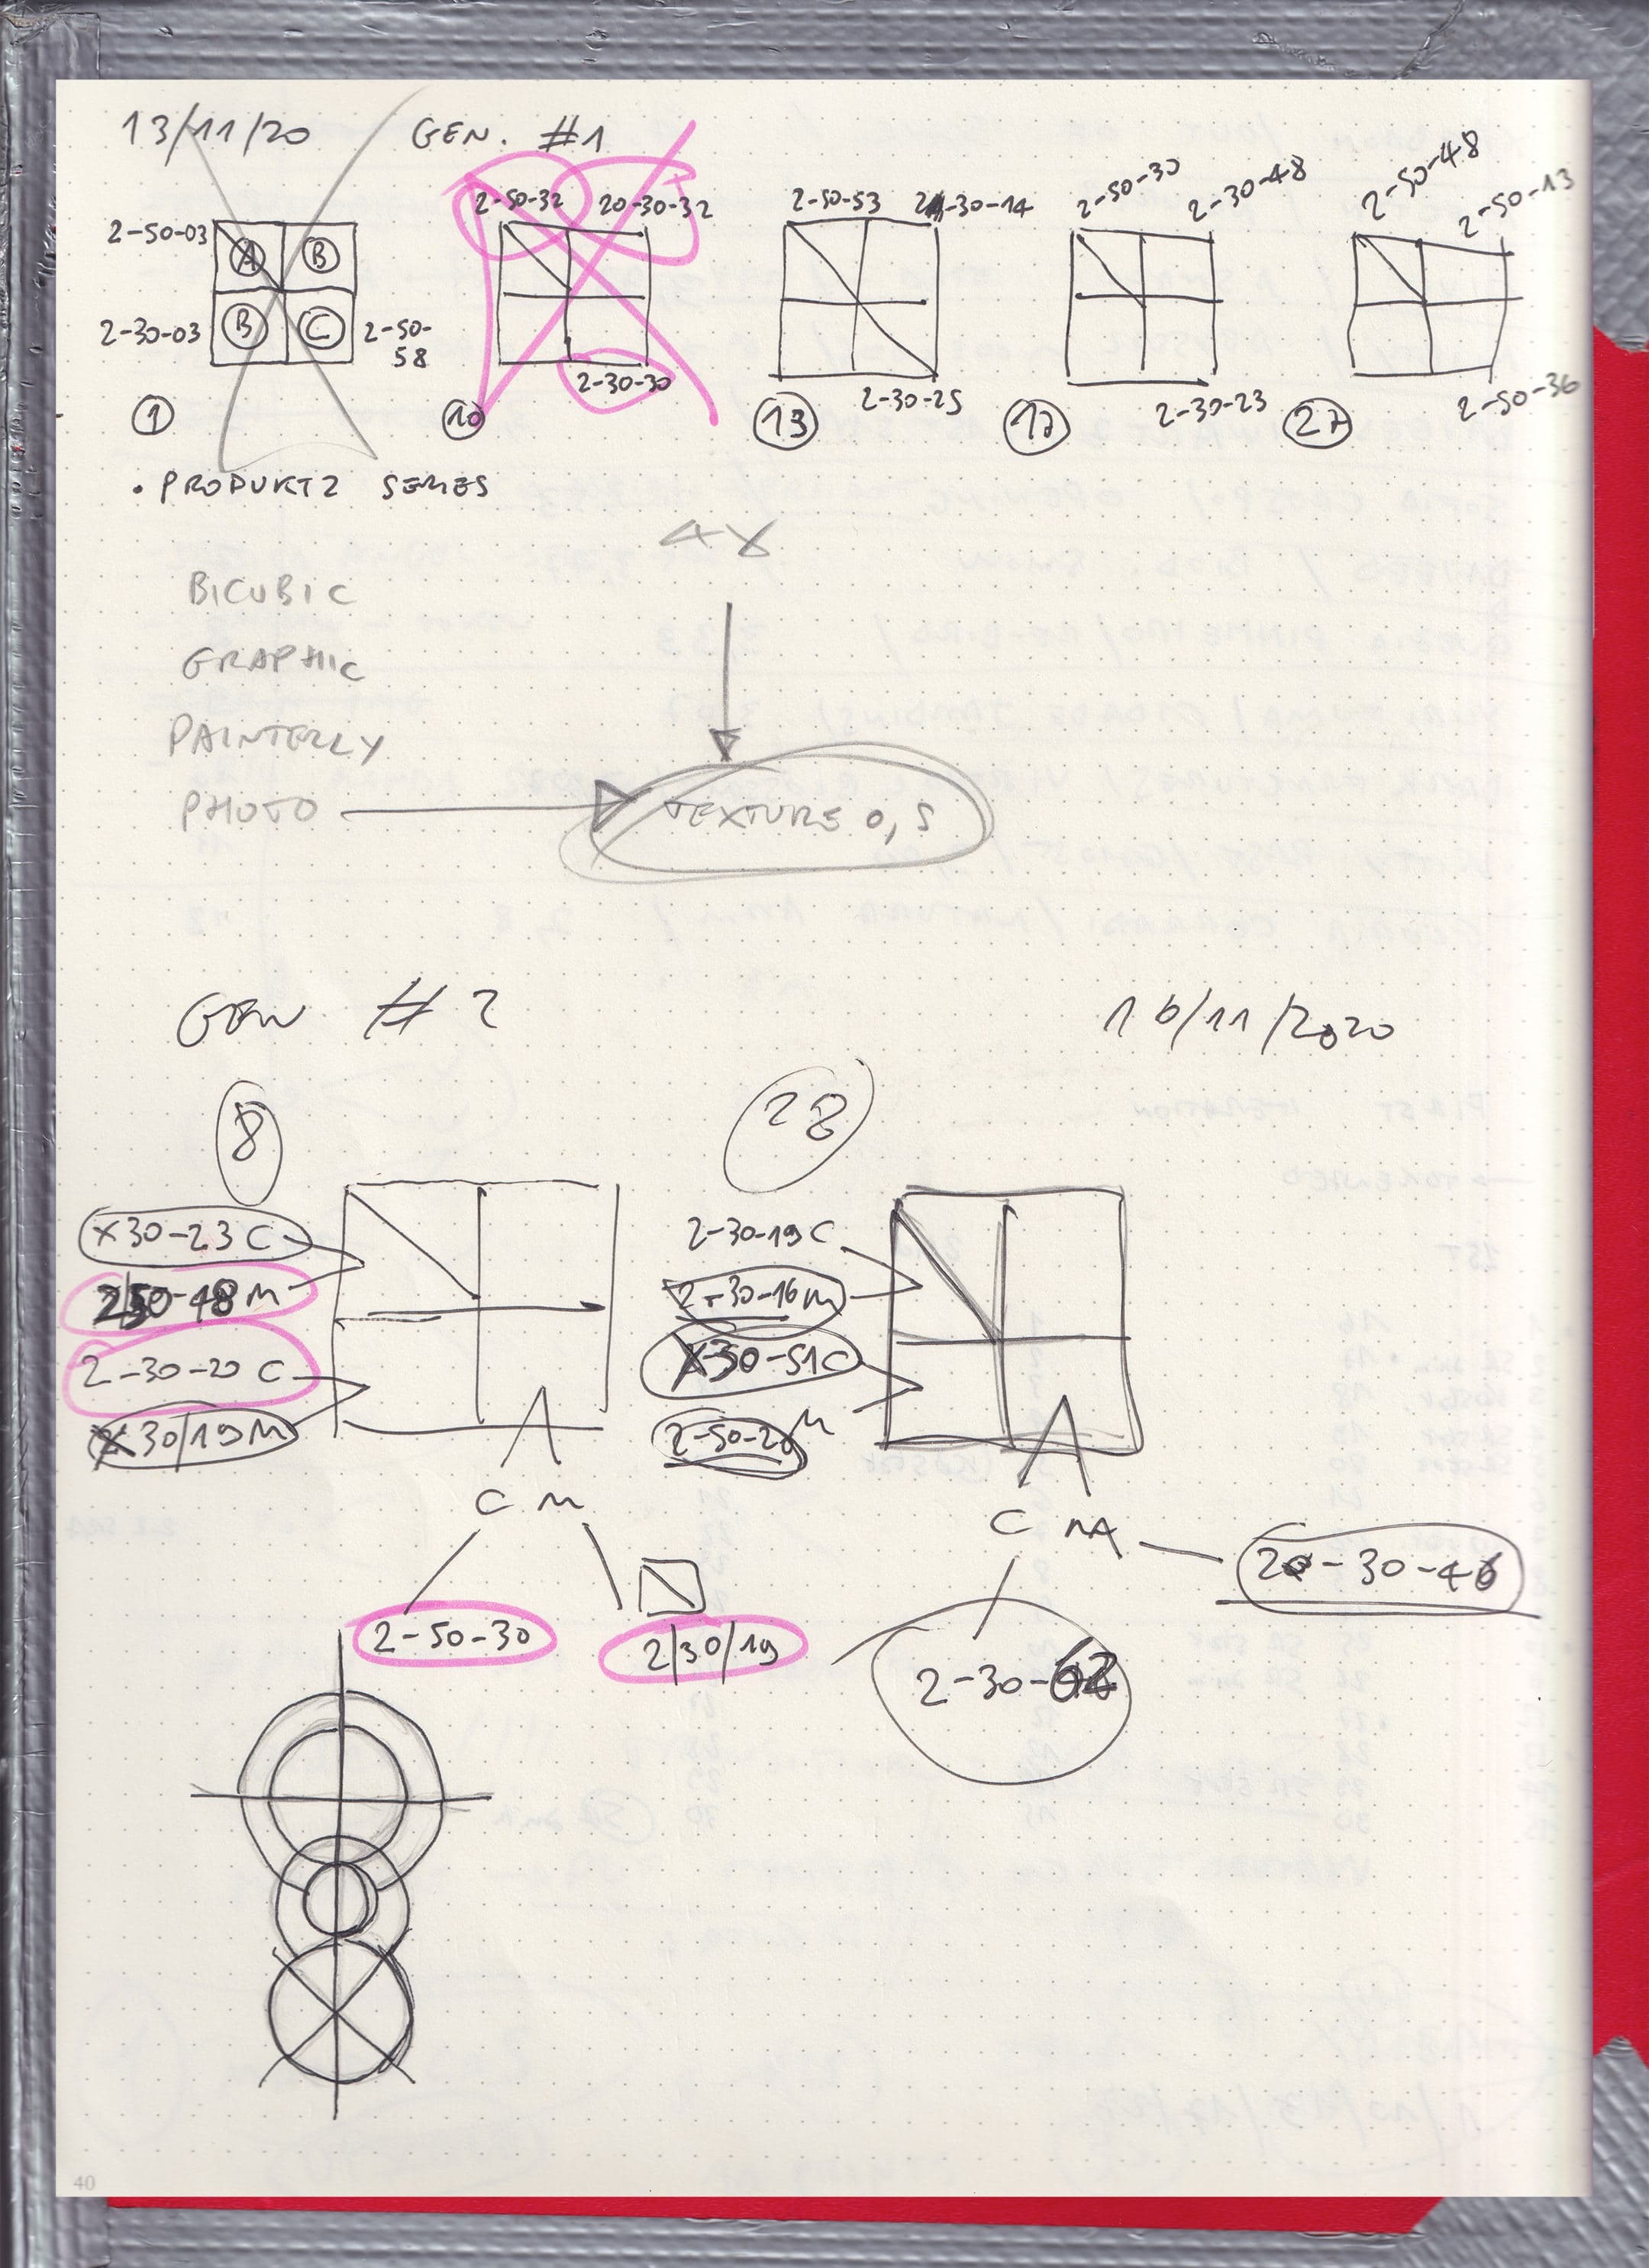 13/11/20 GEN. #1
2-50-03 A B
2-30-03 B C 2-50-58
1
2-50-32 20-30-32
2-30-30
10
2-50-53 2-30-14
2-30-25
13
2-50-30 2-30-48
2-30-23
17
2-50-48 2-50-13
2-50-36
27
• PRODUKT2 SERIES
4X
BICUBIC
GRAPHIC
PAINTERLY
PHOTO TEXTURE 0,5
GEN #2 16/11/2020
8 28
X30-23 C
2/50-48 M
2-30-20 C
X30/19 M
C M
2-50-30 2/30/19
2-30-19 C
2-30-16 M
X50-51 C
2-50-20 M
C M
2-30-46
2-30-62
40